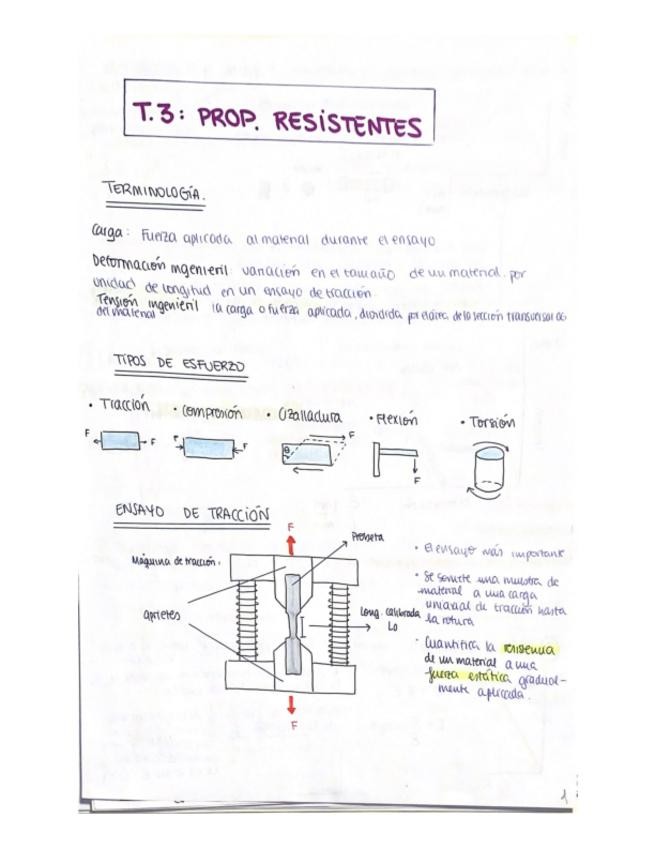 T.3: PROP. RESISTENTES
TERMINOLOGÍA.
Carga: Fuerza aplicada al material durante el ensayo
Deformación ingenieril: variación en el tamaño de un material por
unidad de longitud en un ensayo de tracción
Tensión ingenieril la carga o fuerza aplicada, dividida por el área de la sección transversal
del material
TIPOS DE ESFUERZO
· Tracción · Compresión · Cizalladura · Flexión · Torsión
F F F F F
θ
F
ENSAYO DE TRACCIÓN
F
Probeta
Máquina de tracción.
aprietes
Long. calibrada
L0
F
· El ensayo más importante
· Se somete una muestra de
material a una carga
uniaxial de tracción hasta
la rotura
· Cuantifica la resistencia
de un material a una
fuerza estática gradual-
mente aplicada.
1